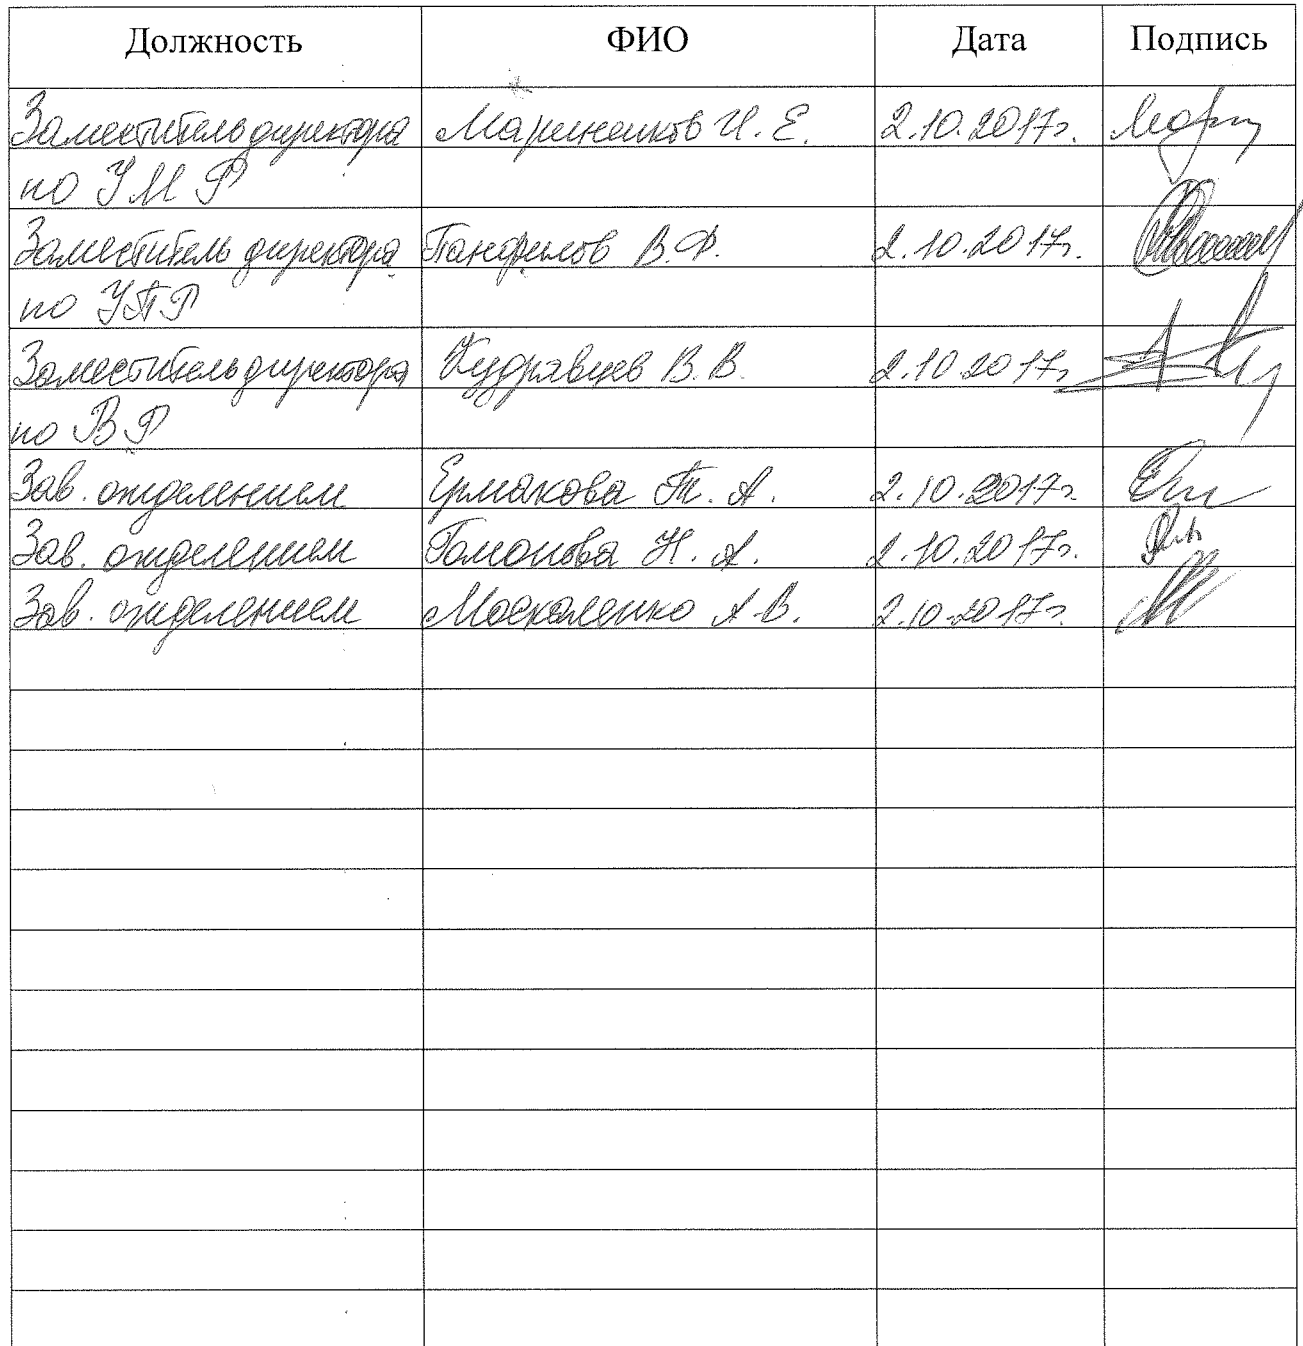 Должность ФИО Дата Подпись
Заместитель директора Мариненков И. Е. 2.10.2017г.
по УМР
Заместитель директора Панфилов В.Ф. 2.10.2017г.
по УПР
Заместитель директора Кудрявцев В.В. 2.10.2017г.
по ВР
Зав. отделением Ермакова Т. А. 2.10.2017г.
Зав. отделением Н. А. 2.10.2017г.
Зав. отделением Москаленко А.В. 2.10.2017г.